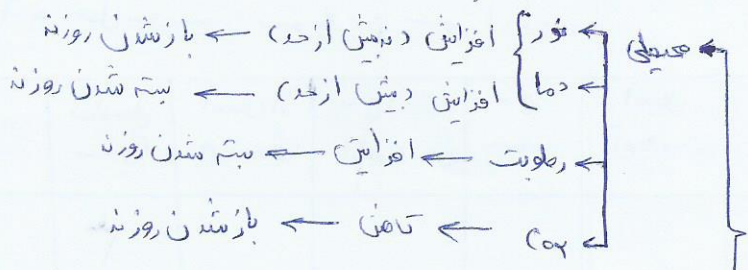 محیطی
نور
دما
افزایش (نه بیش از حد) ← باز شدن روزنه
افزایش (بیش از حد) ← بسته شدن روزنه
رطوبت ← افزایش ← بسته شدن روزنه
CO₂ ← کاهش ← باز شدن روزنه